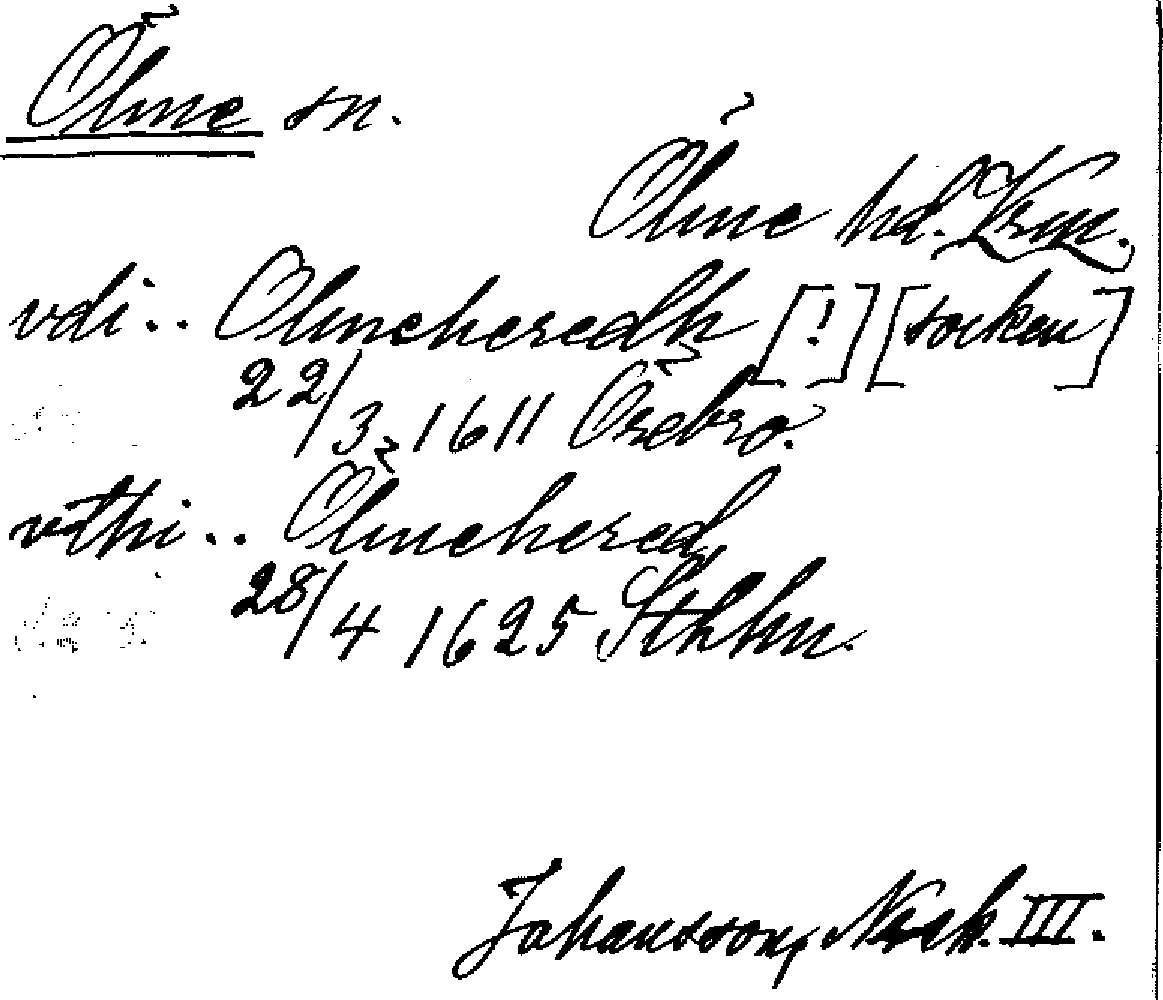 Ölme sn.
Ölme hd. Vrm.
vdi.. Ölmeheredh [!] [socken]
22/3 1611 Örebro.
vthi.. Ölmehered
28/4 1625 Sthlm.
Johansson, Noreb. III.